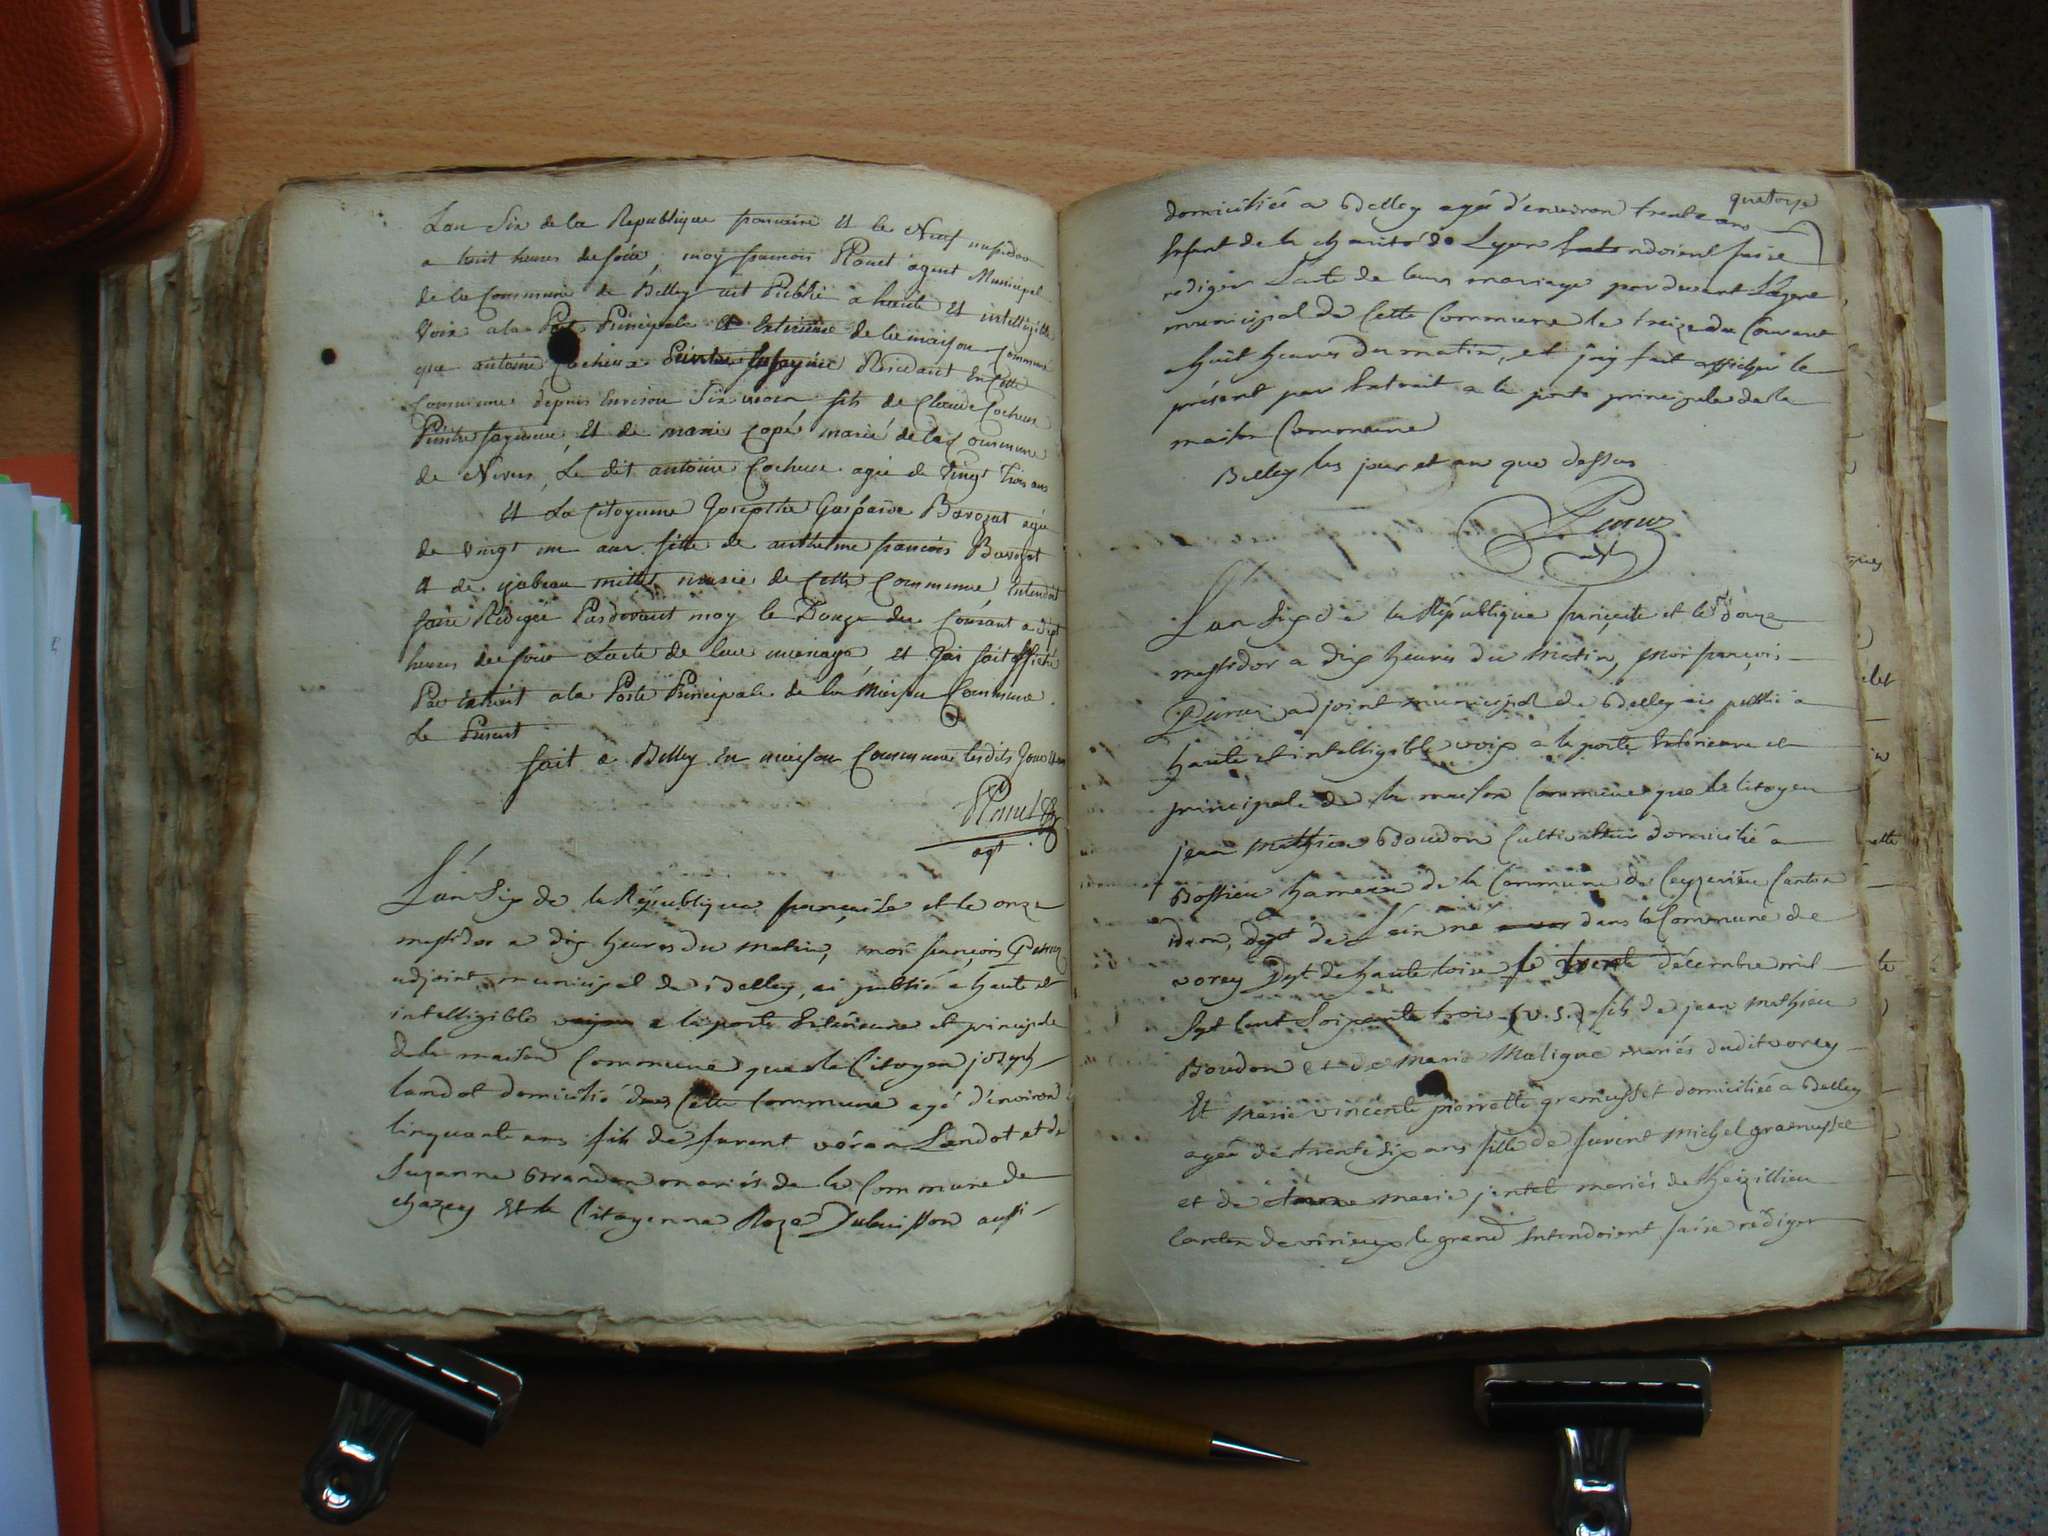 L'an Six de la Republique francaise Et le Neuf messidor
a huit heures de soir, moy francois Plouet agent Municipal
de la Commune de Belley ait Publié a haute Et intelligible
Voix a la Porte Principale Et Exterieure de la maison Commune
que antoine Cocheux Peintre fayance Résidant En Cette
Commune depuis Environ Six mois fils de Claude Cocheux
Peintre fayance Et de marie Capé marié de la Commune
de Nevers, Le dit antoine Cocheux agée de Vingt Trois ans
Et La Citoyenne Josepthe Gaspaire Bavozat agée
de vingt un ans fille de anthelme francois Bavozat
Et de yabeau millet mariée de Cette Commune Entendoit
faire Rediger Pardevant moy le Douze du Courant a Sept
heures de soir Lacte de leur mariage, et Jai fait affiché
Par Extrait a la Porte Principale de la Maison Commune
Le Present
fait a Belley En maison Commune les dits Jour Et an
Plouet
agt
L'an Six de la République française et le onze
messidor a dix heures du matin, moi françois Peruz
adjoint municipal de Belley, ai publié a haute et
intelligible a la porte Extérieure et principale
de la maison Commune que le Citoyen joseph
landot domicilié dans Cette Commune agé d'environ
Cinquante ans fils de furent véran Landot et de
Suzanne Grandon mariés de la Commune de
chazey Et la Citoyenne Roze Dubuisson aussi
quatorze
domiciliée a Belley agée d'environ trente ans
Enfant de la charité de Lyon Entendoient faire
rediger L'acte de leurs mariage par devant L'agent
municipal de Cette Commune le treize du Courant
huit heures du matin, et j'ay fait afficher le
présent par Extrait a la porte principale de la
maison Commune
Belley les jour et an que dessus
Peruz
adjt
L'an Six de la République française et le Douze
messidor a dix heures du matin, moi françois
Peruz adjoint municipal de Belley ai publié a
haute et intelligible voix a la porte Extérieure et
principale de la maison Commune que le Citoyen
jean Mathieu Boudon Cultivateur domicilié a
Bossieu hameau de la Commune de Ceyzerieu Canton
idem, dept de L'ain né dans la Commune de
vorey Dept de haute loire le trente décembre mil
Sept Cent Soixante trois (v. s.) fils de jean mathieu
Boudon et de Marie Maligue mariés dudit vorey
Et Marie vincente pierrette gramusset domiciliée a Belley
agée de trente Six ans fille de furent Michel gramusset
et de marie jantel mariés de
Canton de virieu le grand Entendoient faire rédiger